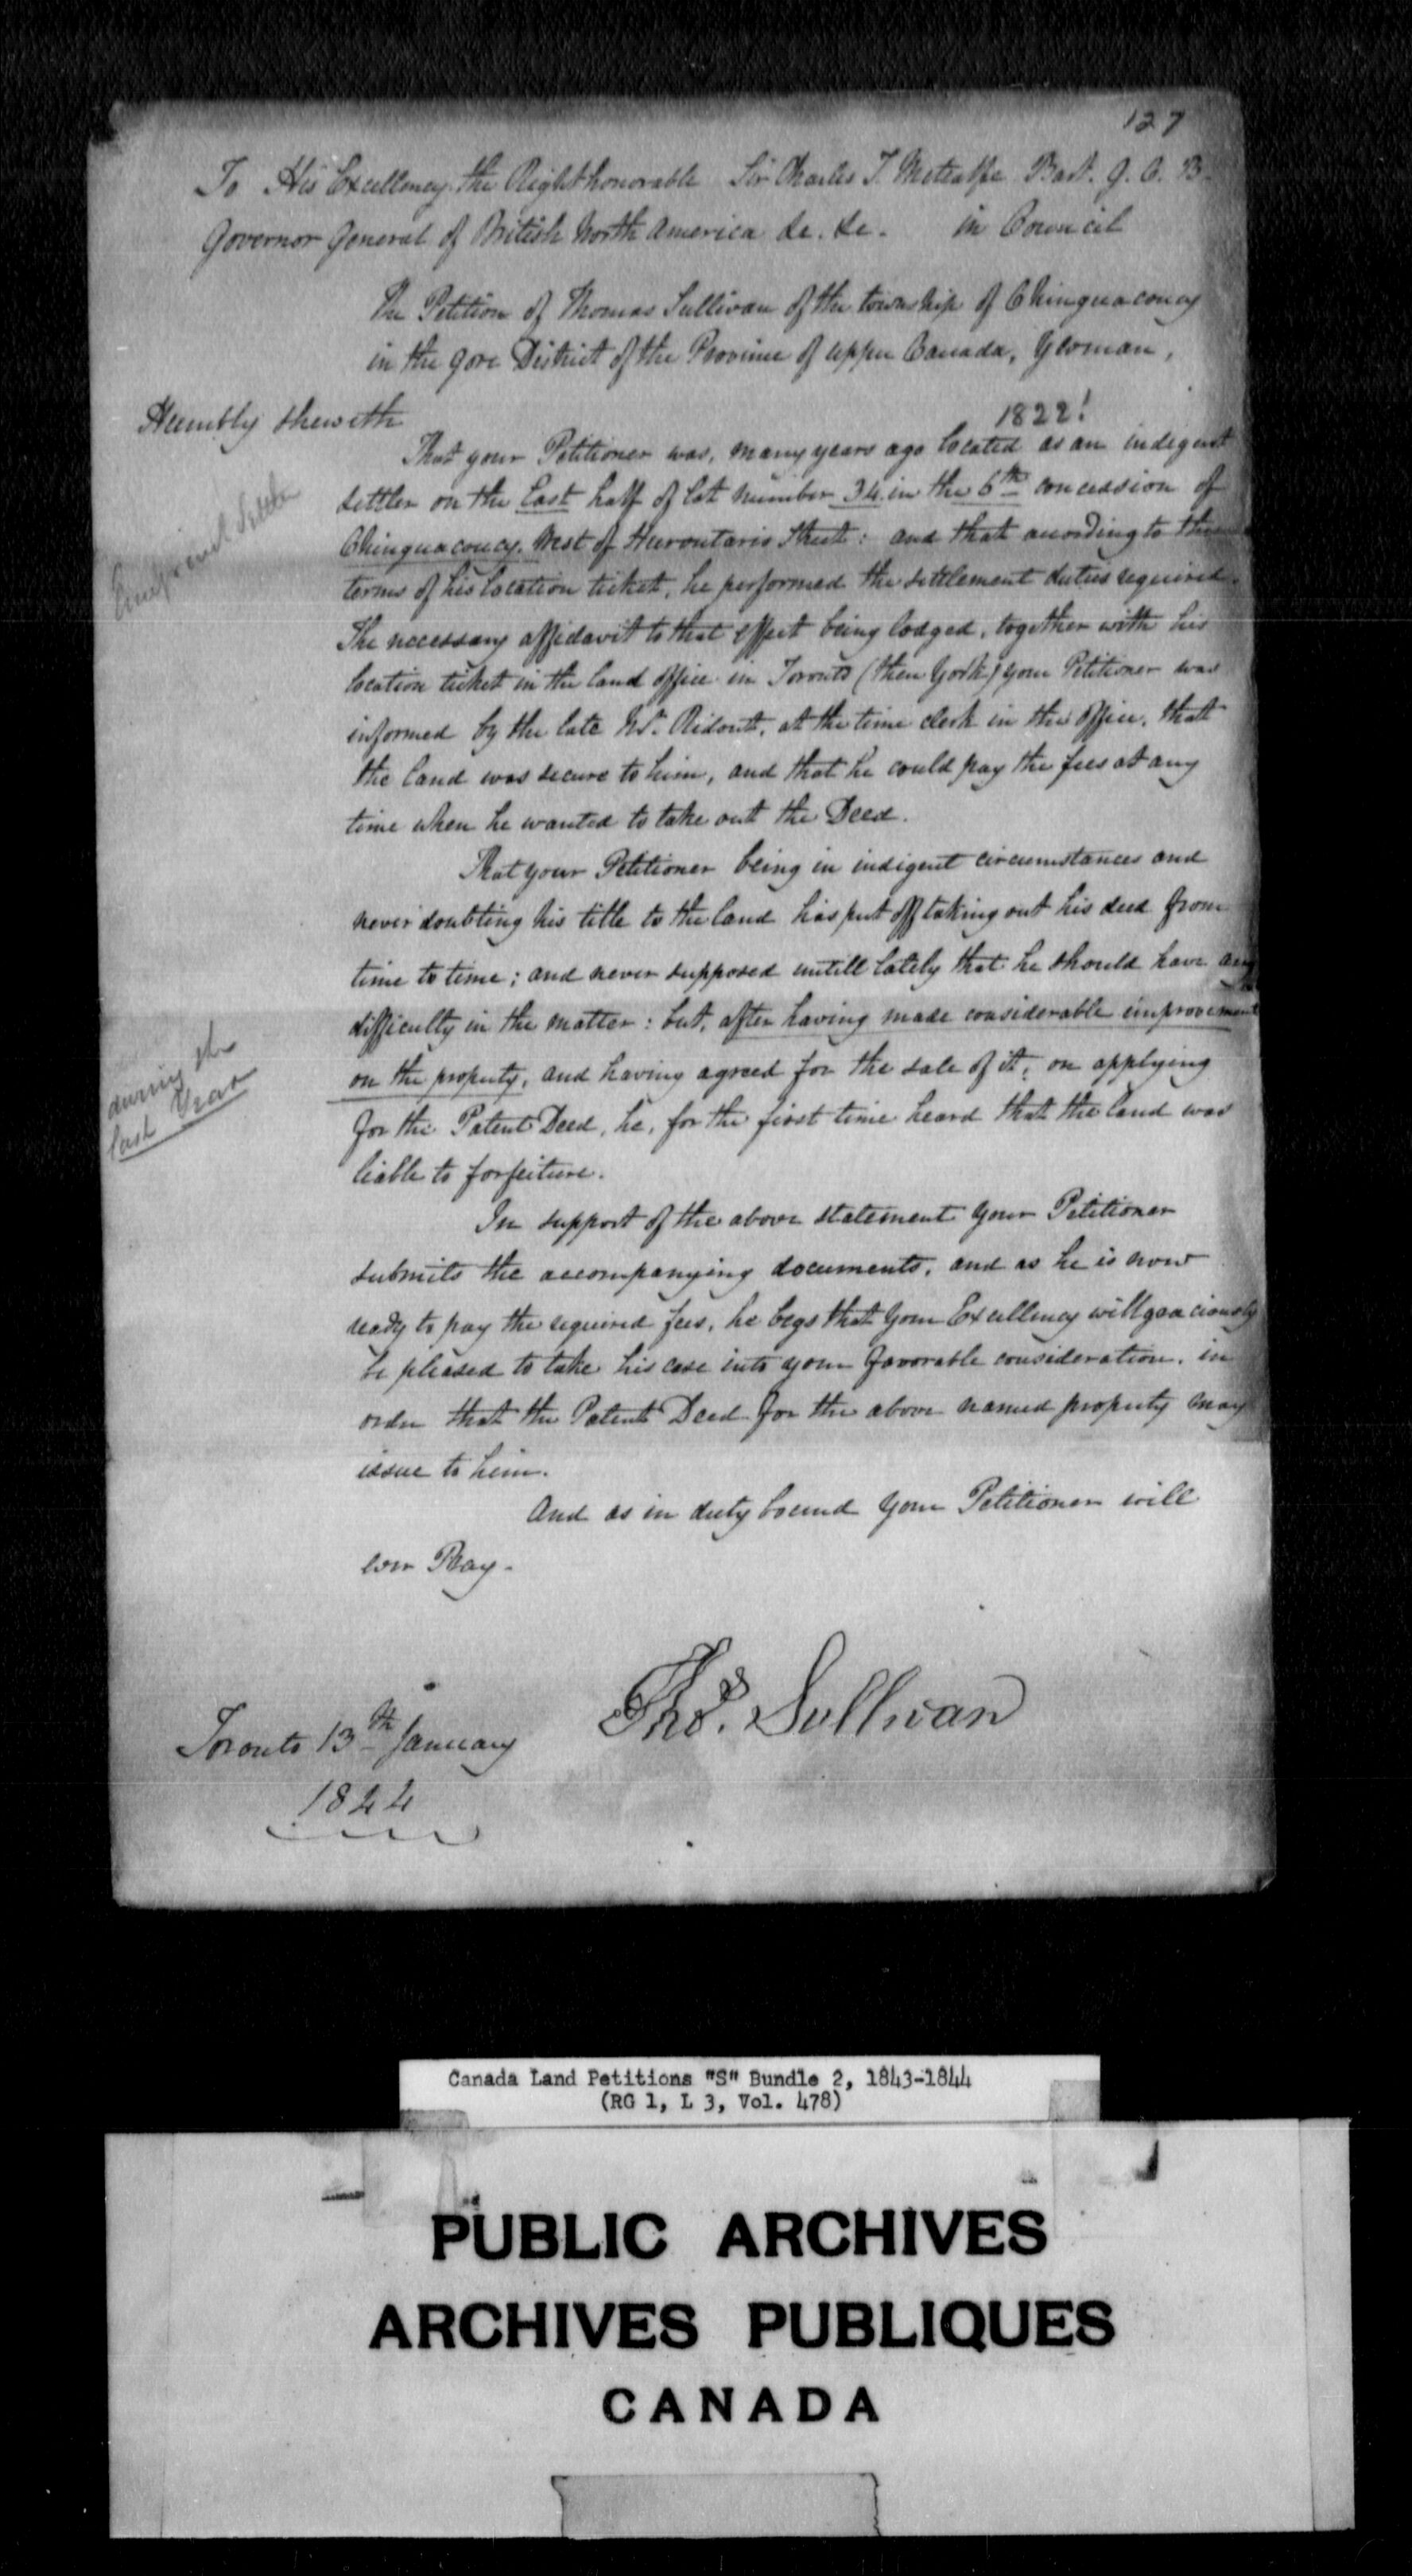 127
To His Excellency the Right honorable Sir Charles T. Metcalfe Bart. G. C. B.
Governor General of British North America &c. &c. in Council
The Petition of Thomas Sullivan of the township of Chinguacoucy
in the Gore District of the Province of Upper Canada, Yeoman,
Humbly sheweth
1822!
That your Petitioner was, many years ago located as an indigent
settler on the East half of lot number 34 in the 6th concession of
Chinguacoucy. West of Hurontario Street: and that according to the
terms of his location ticket, he performed the settlement duties required.
The necessary affidavit to that effect being lodged, together with his
location ticket in the land office in Toronto (then York) your Petitioner was
informed by the late Mr. Ridout, at the time clerk in the office, that
the land was secure to him, and that he could pay the fees at any
time when he wanted to take out the Deed.
That your Petitioner being in indigent circumstances and
never doubting his title to the land has put off taking out his deed from
time to time; and never supposed untill lately that he should have any
difficulty in the matter: but, after having made considerable improvement
during the
last Year
on the property, and having agreed for the sale of it; on applying
for the Patent Deed, he, for the first time heard that the land was
liable to forfeiture.
In support of the above statement your Petitioner
submits the accompanying documents, and as he is now
ready to pay the required fees, he begs that Your Excellency will graciously
be pleased to take his case into your favorable consideration, in
order that the Patent Deed for the above named property may
issue to him.
And as in duty bound your Petitioner will
ever Pray.
Thos. Sullivan
Toronto 13th January
1844
Canada Land Petitions "S" Bundle 2, 1843-1844
(RG 1, L 3, Vol. 478)
PUBLIC ARCHIVES
ARCHIVES PUBLIQUES
CANADA